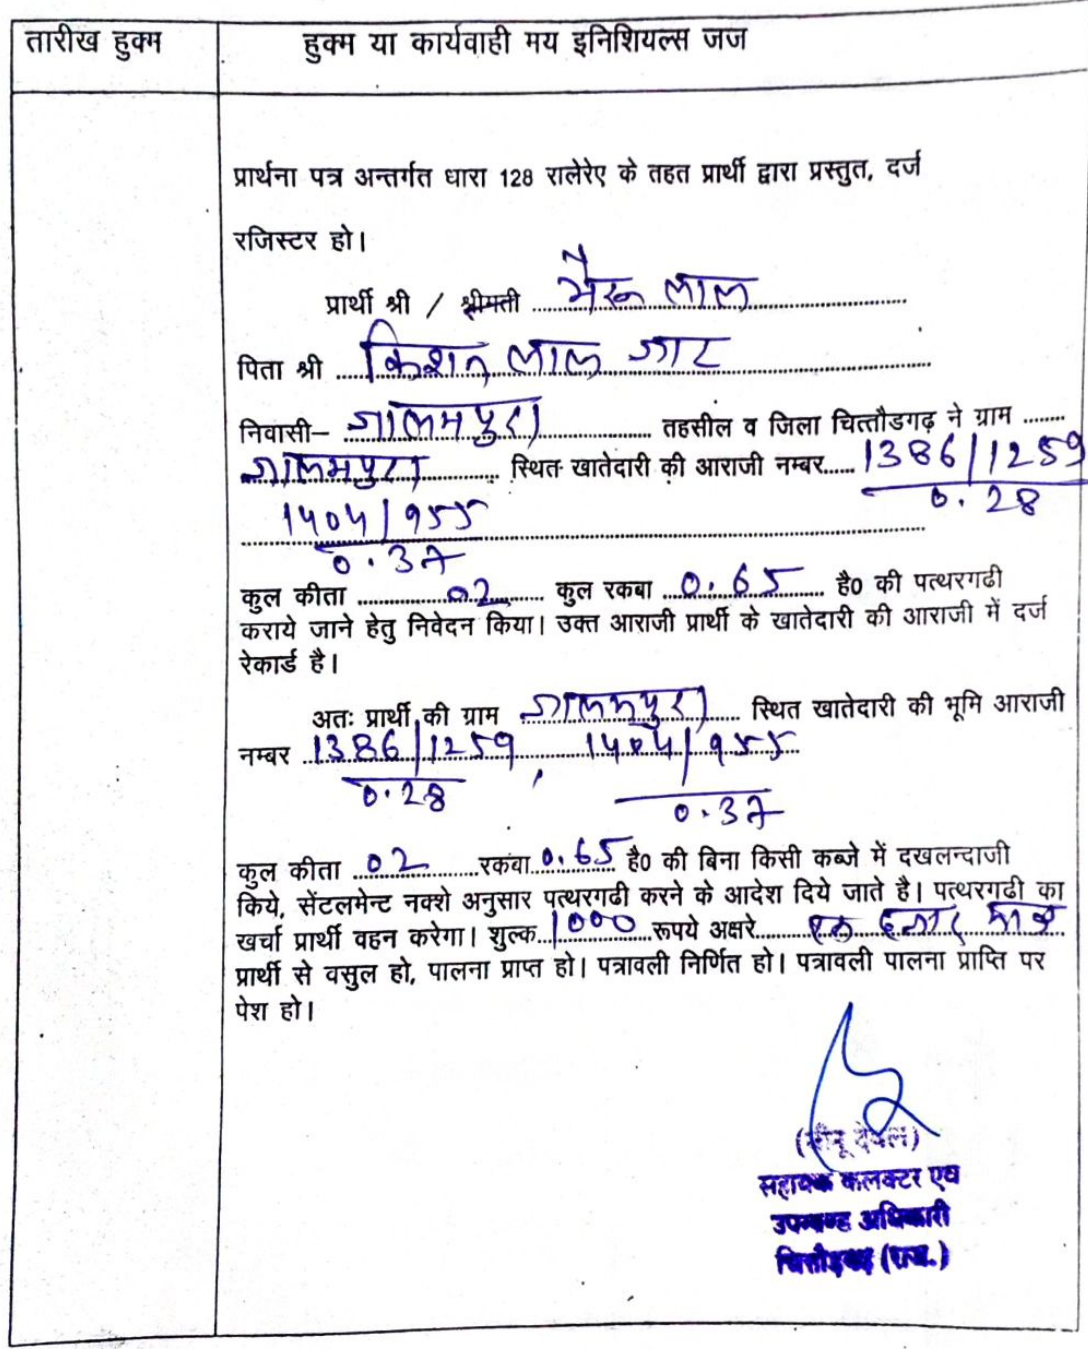 तारीख हुक्म
हुक्म या कार्यवाही मय इनिशियल्स जज
प्रार्थना पत्र अन्तर्गत धारा 128 रालेरेए के तहत प्रार्थी द्वारा प्रस्तुत, दर्ज
रजिस्टर हो।
प्रार्थी श्री / श्रीमती भैरू लाल
पिता श्री किशन लाल जाट
निवासी– जालमपुरा तहसील व जिला चित्तौडगढ़ ने ग्राम
जालमपुरा स्थित खातेदारी की आराजी नम्बर 1386/1259
0.28
1404/955
0.37
कुल कीता 02 कुल रकबा 0.65 है0 की पत्थरगढी
कराये जाने हेतु निवेदन किया। उक्त आराजी प्रार्थी के खातेदारी की आराजी में दर्ज
रेकार्ड है।
अतः प्रार्थी की ग्राम जालमपुरा स्थित खातेदारी की भूमि आराजी
नम्बर 1386/1259, 1404/955
0.28 0.37
कुल कीता 02 रकबा 0.65 है0 की बिना किसी कब्जे में दखलन्दाजी
किये, सेंटलमेन्ट नक्शे अनुसार पत्थरगढी करने के आदेश दिये जाते है। पत्थरगढी का
खर्चा प्रार्थी वहन करेगा। शुल्क 1000 रूपये अक्षरे एक हजार मात्र
प्रार्थी से वसुल हो, पालना प्राप्त हो। पत्रावली निर्णित हो। पत्रावली पालना प्राप्ति पर
पेश हो।
सहायक कलक्टर एवं
उपखण्ड अधिकारी
चित्तौड़गढ़ (राज.)